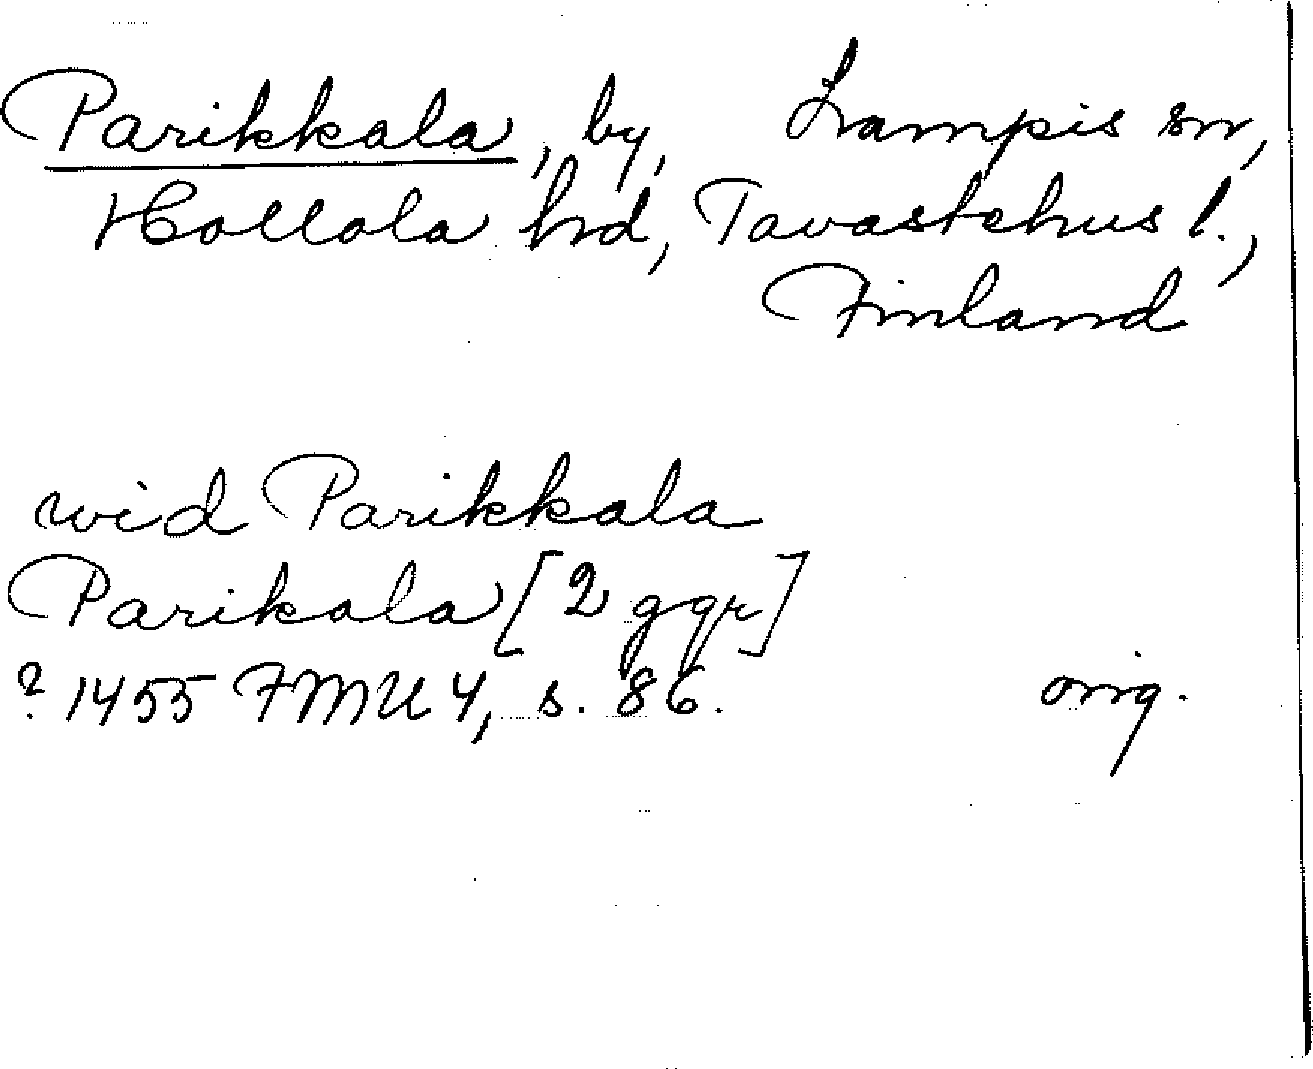 Parikkala, by, Lampis sn,
Hollola hd, Tavastehus l.,
Finland
wid Parikkala
Parikala [2 ggr]
? 1455 FMU 4, s. 86. orig.